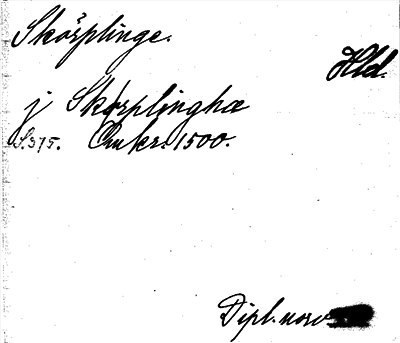 Skörplinge.
Hld.
j Skørplinghæ
S. 375. Omkr. 1500.
Dipl. norv